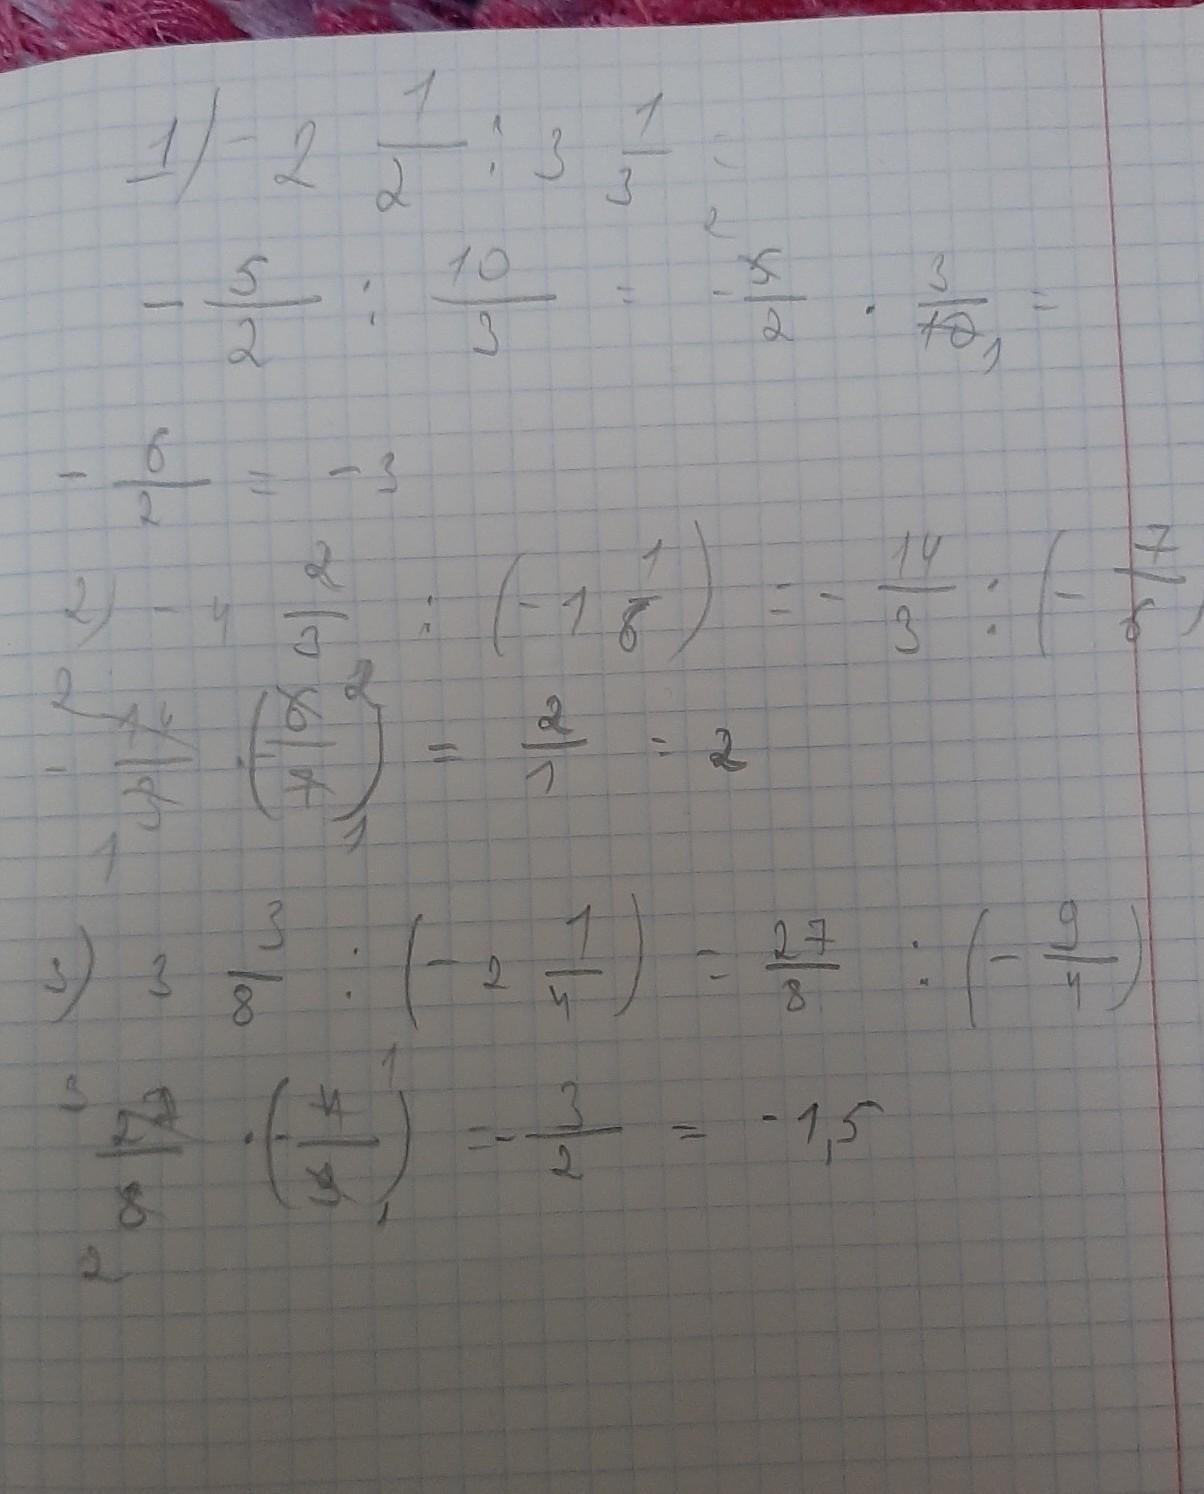 1) - 2 1/2 : 3 1/3 =
- 5/2 : 10/3 = - 5/2 2 · 3/10 1 =
- 6/2 = -3
2) - 4 2/3 : (- 1 1/6) = - 14/3 : (- 7/6)
2 - 14/3 1 · (- 6/7) 2 1 = 2/1 = 2
3) 3 3/8 : (- 2 1/4) = 27/8 : (- 9/4)
3 27/8 2 · (- 4/9) 1 1 = - 3/2 = -1,5